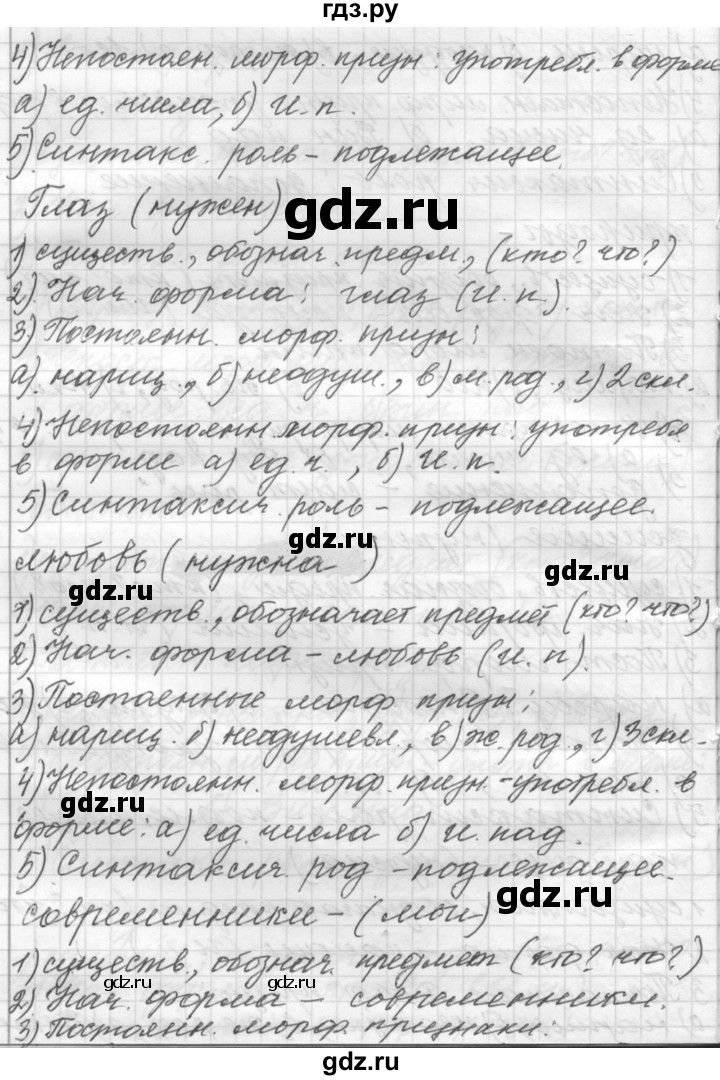 гдз.ру
4) Непостоян. морф. призн: употребл. в форме
а) ед. числа, б) И. п.
5) Синтакс. роль - подлежащее.
Глаз (нужен)
gdz.ru
1) существ., обознач. предм, (кто? что?)
2) Нач. форма: глаз (И. п.).
3) Постоянн. морф. призн:
а) нариц., б) неодуш., в) м. род., г) 2 скл.
4) Непостоянн морф. призн: употребл
в форме а) ед. ч., б) И. п.
5) Синтаксич. роль - подлежащее.
gdz.ru
любовь (нужна )
gdz.ru
gdz.ru
1) существ., обозначает предмет (кто? что?)
2) Нач. форма - любовь (И. п).
3) Постоенные морф. призн:
а) нариц. б) неодушевл., в) ж. род., г) 3 скл -
4) Непостоянн. морф. призн - употребл. в
gdz.ru
форме: а) ед. числа б) И. пад.
5) Синтаксич. род - подлежащее.
gdz.ru
современники - (мои)
1) существ., обознач. предмет (кто? что?)
gdz.ru
2) Нач. форма - современники.
3) Постоянн. морф. признаки:
gdz.ru